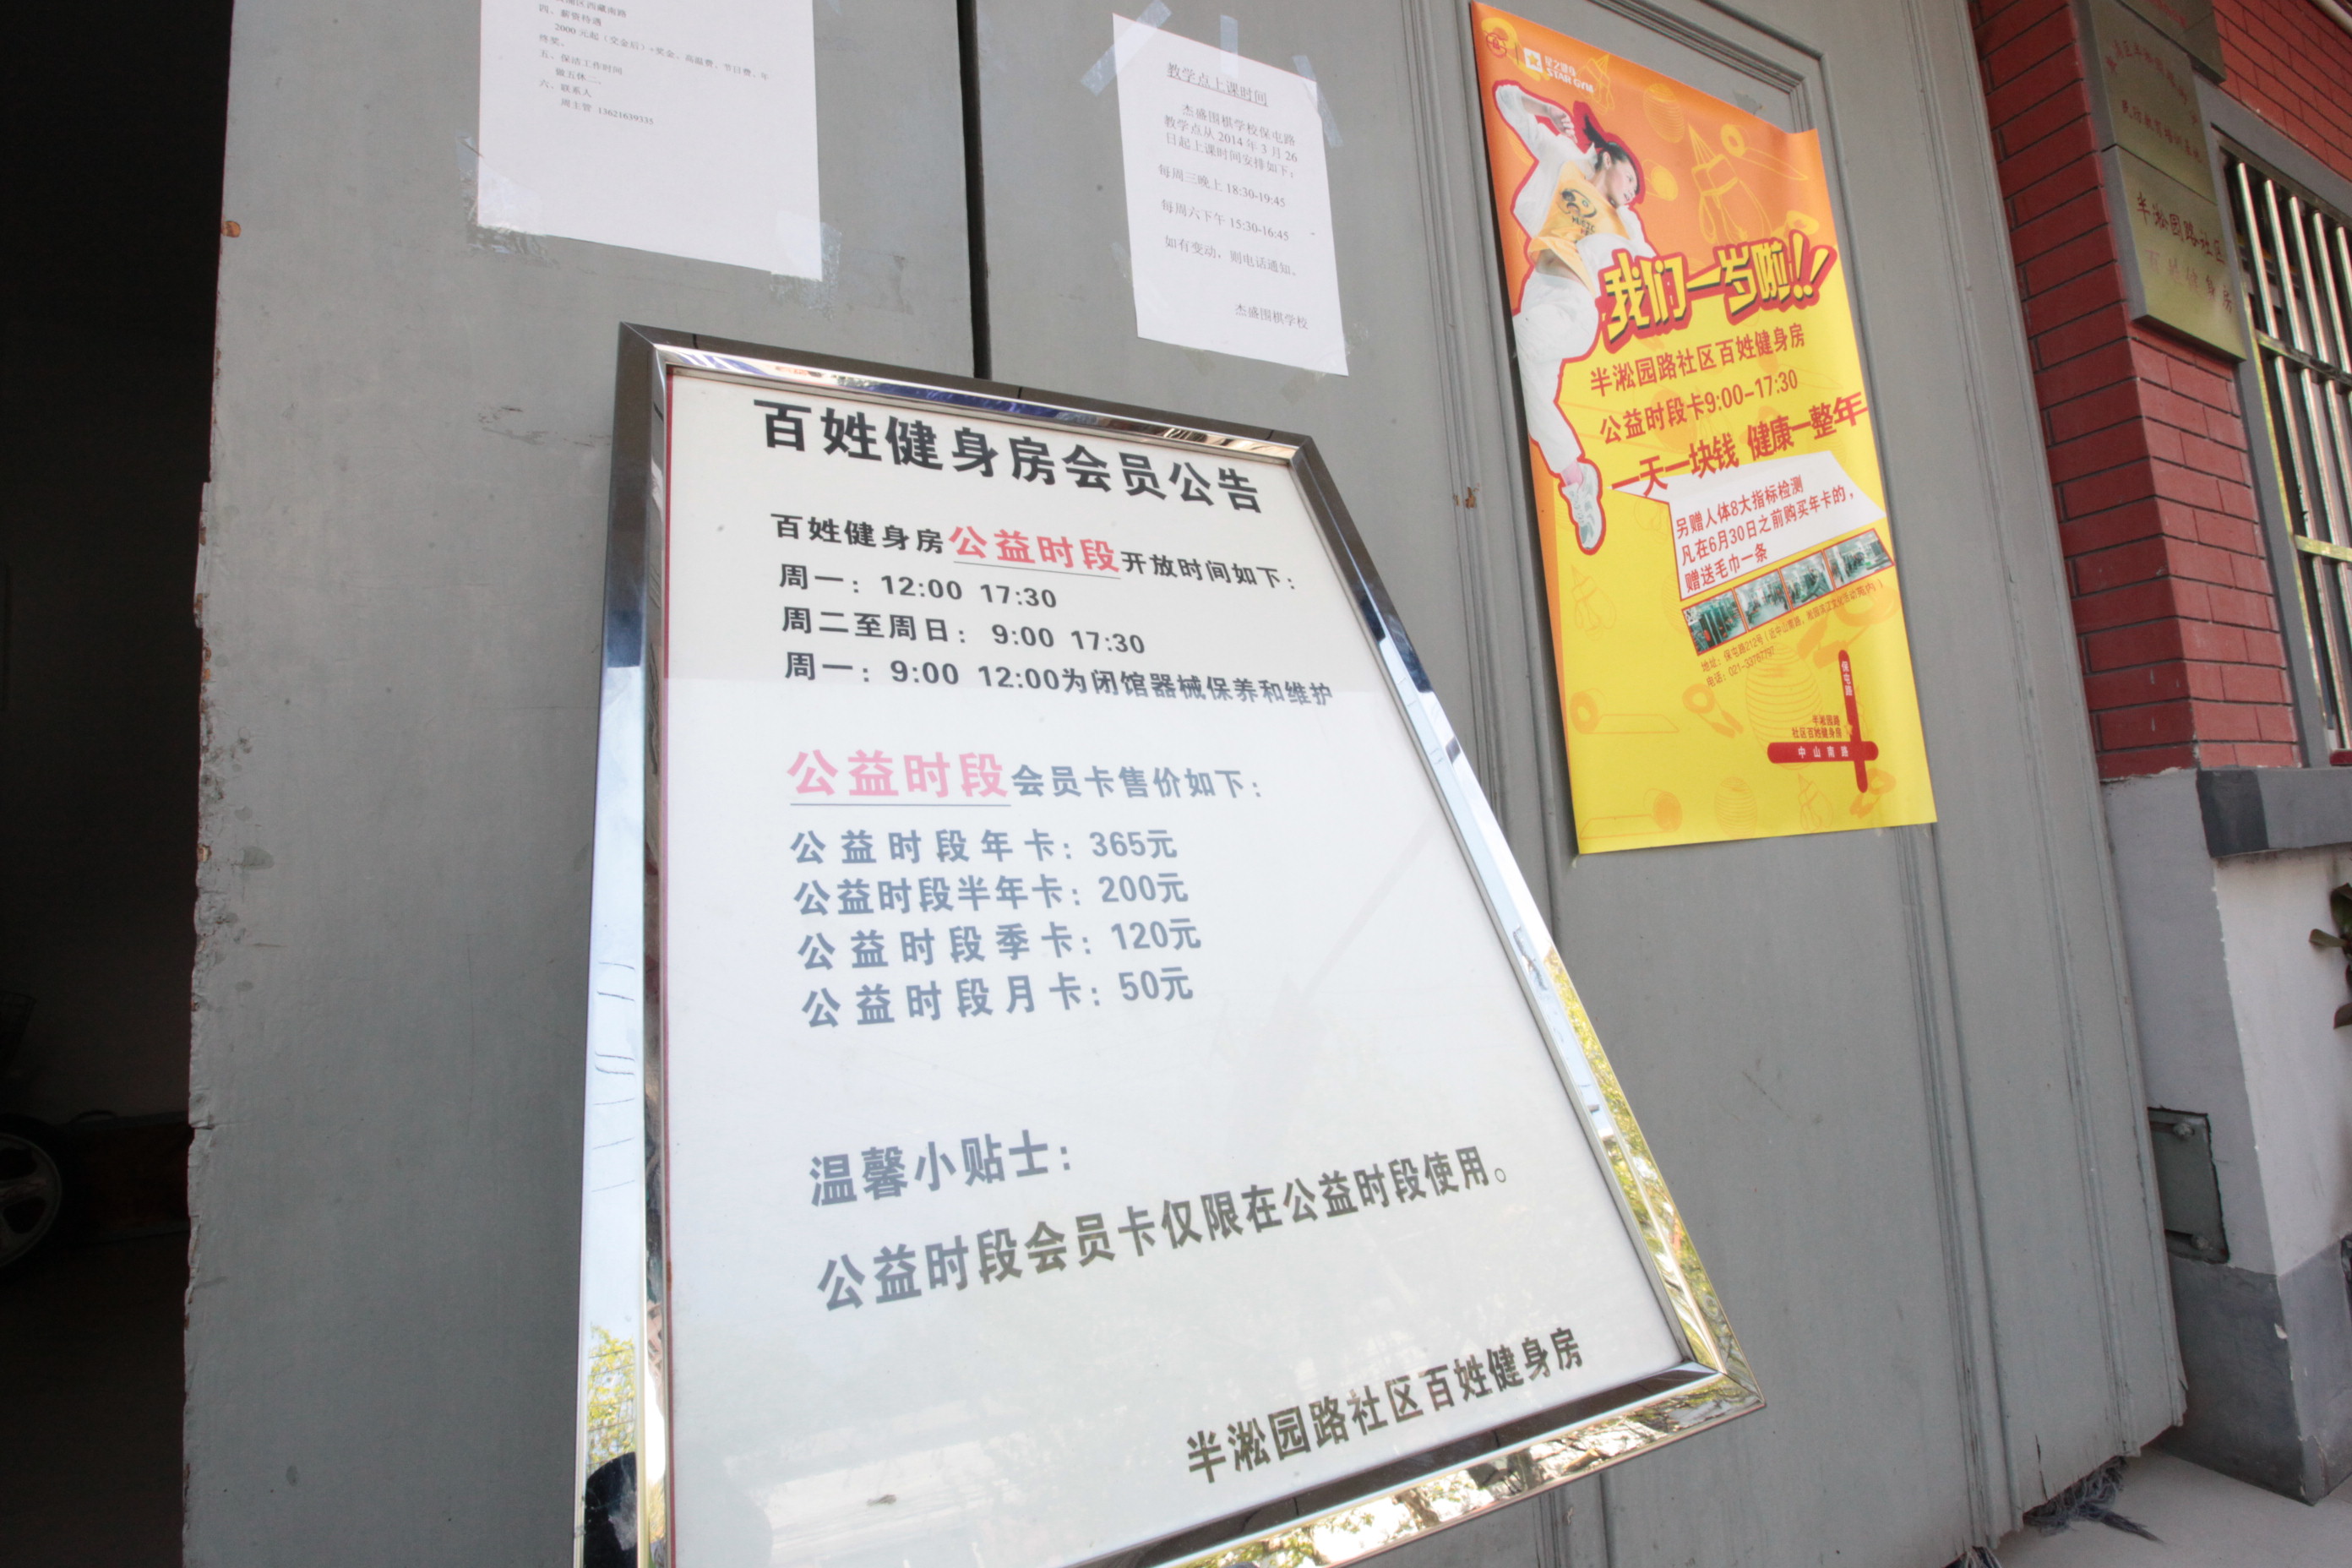 四、薪资待遇
2000元起（交金后）+奖金、高温费、节日费、年
终奖。
五、保洁工作时间
做五休二。
六、联系人
周主管 13621639335
教学点上课时间
杰盛围棋学校保屯路
教学点从2014年3月26
日起上课时间安排如下：
每周三晚上 18:30-19:45
每周六下午 15:30-16:45
如有变动，则电话通知。
杰盛围棋学校
百姓健身房会员公告
百姓健身房公益时段开放时间如下：
周一：12:00 17:30
周二至周日：9:00 17:30
周一：9:00 12:00为闭馆器械保养和维护
公益时段会员卡售价如下：
公益时段年卡：365元
公益时段半年卡：200元
公益时段季卡：120元
公益时段月卡：50元
温馨小贴士：
公益时段会员卡仅限在公益时段使用。
半淞园路社区百姓健身房
星之健身
STAR GYM
我们一岁啦!!
半淞园路社区百姓健身房
公益时段卡9:00-17:30
一天一块钱 健康一整年
另赠人体8大指标检测
凡在6月30日之前购买年卡的，
赠送毛巾一条
地址：保屯路212号
电话：021-33767797
保屯路
半淞园路
社区百姓健身房
中山南路
半淞园路社区
百姓健身房